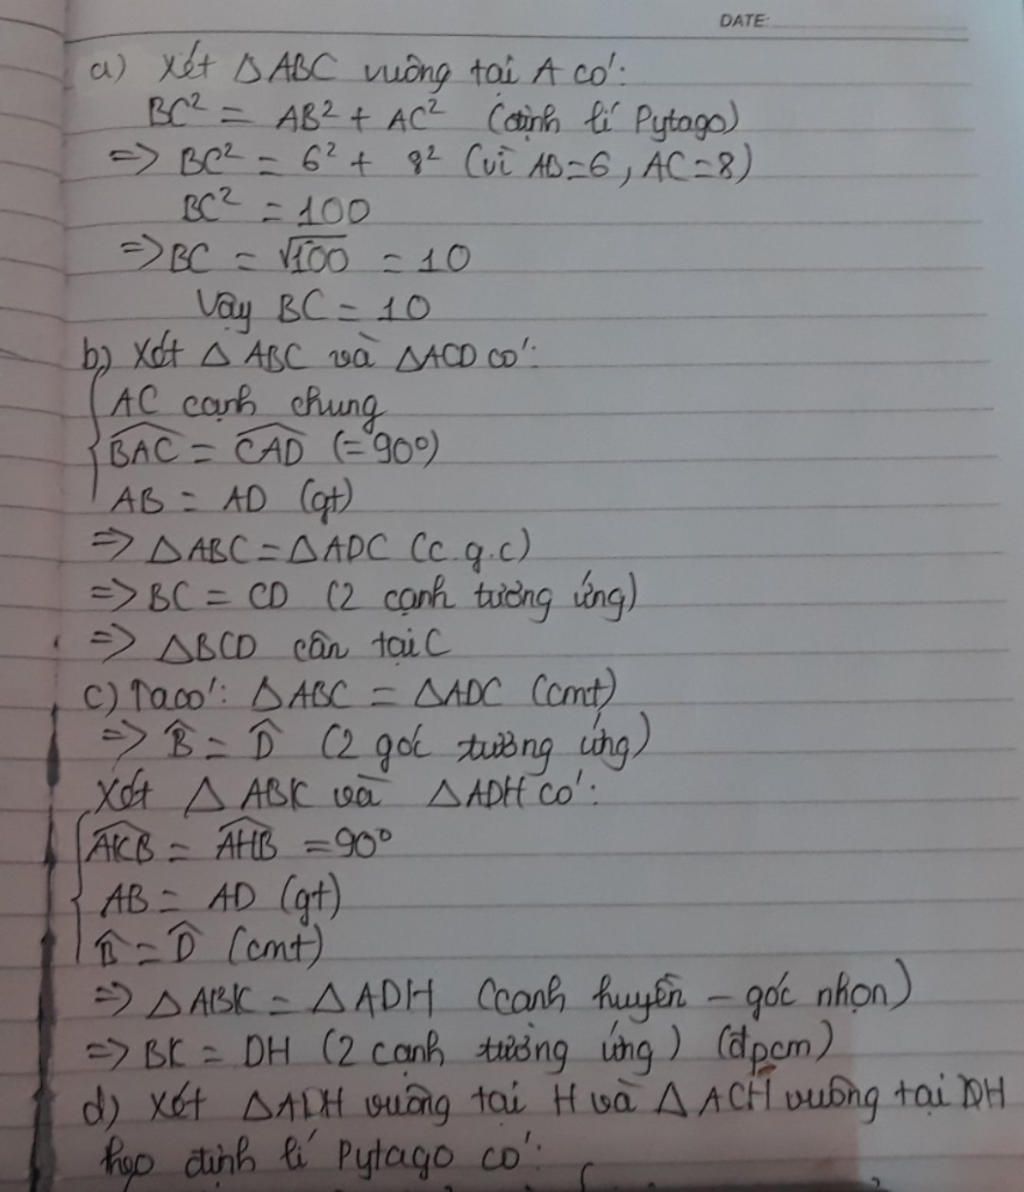 DATE:
a) Xét △ABC vuông tại A có:
BC² = AB² + AC² (định lí Pytago)
=> BC² = 6² + 8² (vì AB=6, AC=8)
BC² = 100
=> BC = √100 = 10
Vậy BC = 10
b) Xét △ABC và △ACD có:
AC cạnh chung
BAC = CAD (=90°)
AB = AD (gt)
=> △ABC = △ADC (c.g.c)
=> BC = CD (2 cạnh tương ứng)
=> △BCD cân tại C
c) Ta có: △ABC = △ADC (cmt)
=> B̂ = D̂ (2 góc tương ứng)
Xét △ABK và △ADH có:
AKB = AHB = 90°
AB = AD (gt)
B̂ = D̂ (cmt)
=> △ABK = △ADH (cạnh huyền - góc nhọn)
=> BK = DH (2 cạnh tương ứng) (đpcm)
d) Xét △ADH vuông tại H và △ACH vuông tại DH
định lí Pytago có: